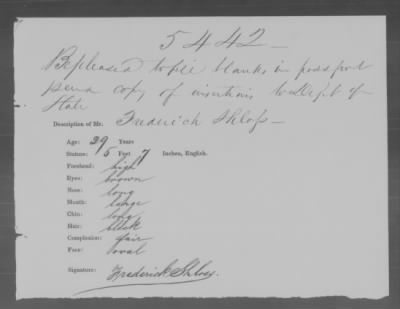 5442
Be pleased to fill blanks in passport
send a copy of insertions to Dept of
State
Description of Mr. Frederick Shloss
Age: 29 Years
Stature: 5 Feet 7 Inches, English.
Forehead: high
Eyes: brown
Nose: long
Mouth: large
Chin: long
Hair: black
Complexion: fair
Face: oval
Signature: Frederick Shloss